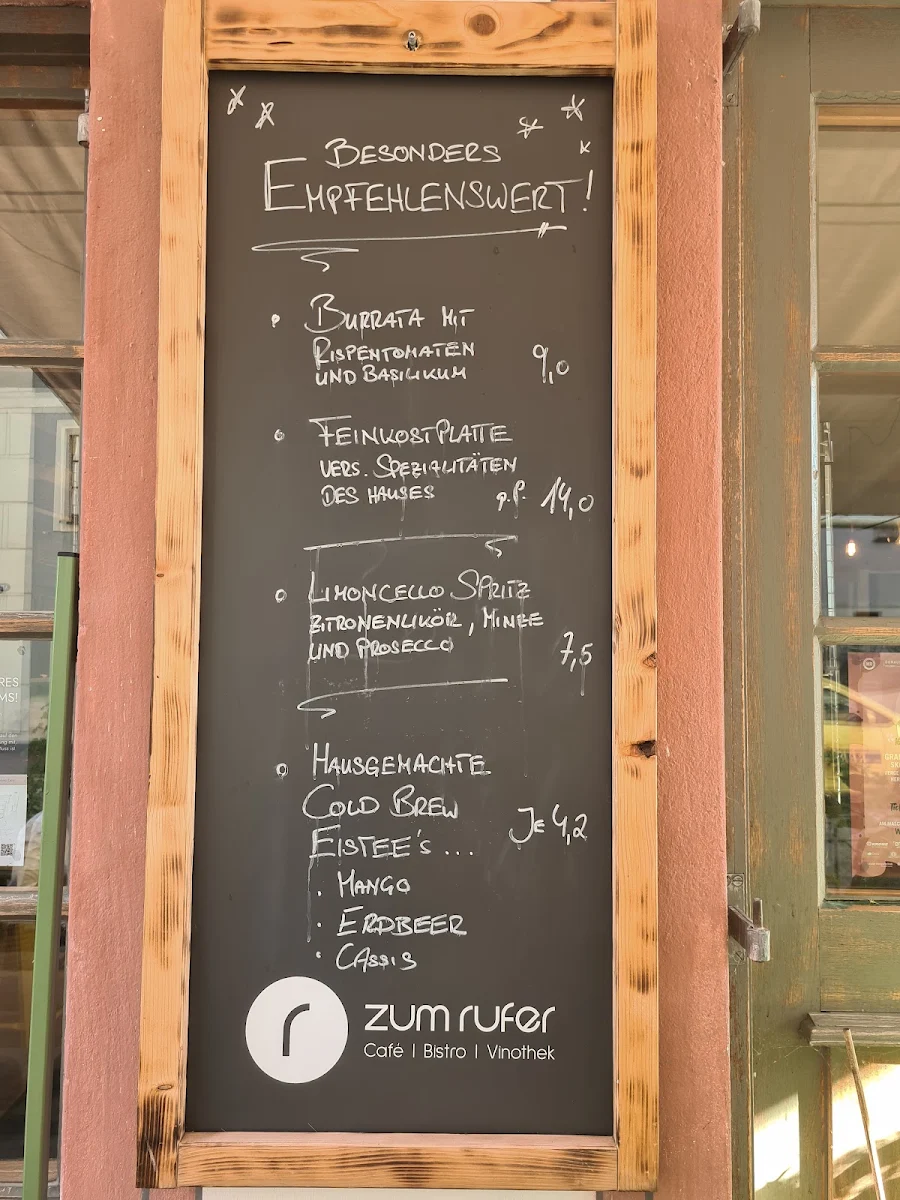 BESONDERS
EMPFEHLENSWERT!
• BURRATA MIT
RISPENTOMATEN
UND BASILIKUM 9,0
• FEINKOSTPLATTE
VERS. SPEZIALITÄTEN
DES HAUSES p.P. 14,0
• LIMONCELLO SPRITZ
ZITRONENLIKÖR, MINZE
UND PROSECCO 7,5
• HAUSGEMACHTE
COLD BREW
EISTEE's ... JE 4,2
· MANGO
· ERDBEER
· CASSIS
r zum rufer
Café | Bistro | Vinothek